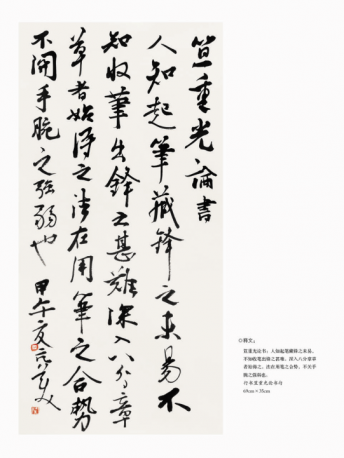 笪重光論書
人知起筆藏鋒之未易不
知收筆出鋒之甚難深入八分章
草者始得之法在用筆之合勢
不關手腕之强弱也
甲午夏
◎释文：
笪重光论书：人知起笔藏锋之未易，
不知收笔出锋之甚难，深入八分章草
者始得之，法在用笔之合势，不关手
腕之强弱也。
行书笪重光论书句
69cm×35cm